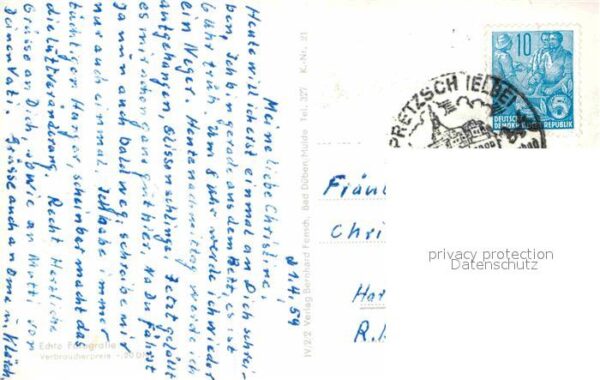 d 1.4.59
Meine liebe Christine!
Heute will ich erst einmal an Dich schrei-
ben. Ich bin gerade aus dem Bett, es ist
6 Uhr früh. Um 8 Uhr werde ich wieder
ein Neger. Heute nachmittag werde ich
es mir nehmen ganz gut hier. Na Du fährst
ja nun auch bald weg, schreibe mir
nur auch einmal. Ich habe immer
tüchtigen Hunger, scheinbar macht das
die Luftveränderung. Recht Herzliche
Grüsse an Dich sowie an Mutti von
Deinen Vati. Grüsse auch an Oma u. Kläthi
Echte Fotografie
Verbraucherpreis
IV/2/2 Verlag Bernhard Fensch, Bad Düben Mulde Tel. 327 K.-Nr. 21
PRETZSCH (ELBE)
10
5
DEUTSCHE
DEMOKRATISCHE REPUBLIK
Fräul
Chri
Har
R.
privacy protection
Datenschutz